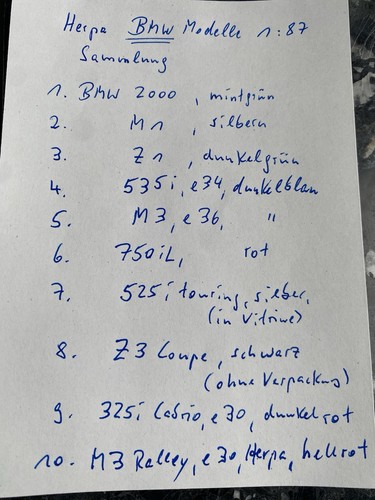 Herpa BMW Modelle 1:87
Sammlung
1. BMW 2000, mintgrün
2. M1, silbern
3. Z1, dunkelgrün
4. 535i, e34, dunkelblau
5. M3, e36, "
6. 750iL, rot
7. 525i touring, silber,
(in Vitrine)
8. Z3 Coupe, schwarz
(ohne Verpackung)
9. 325i Cabrio, e30, dunkelrot
10. M3 Ralley, e30, Herpa, hellrot